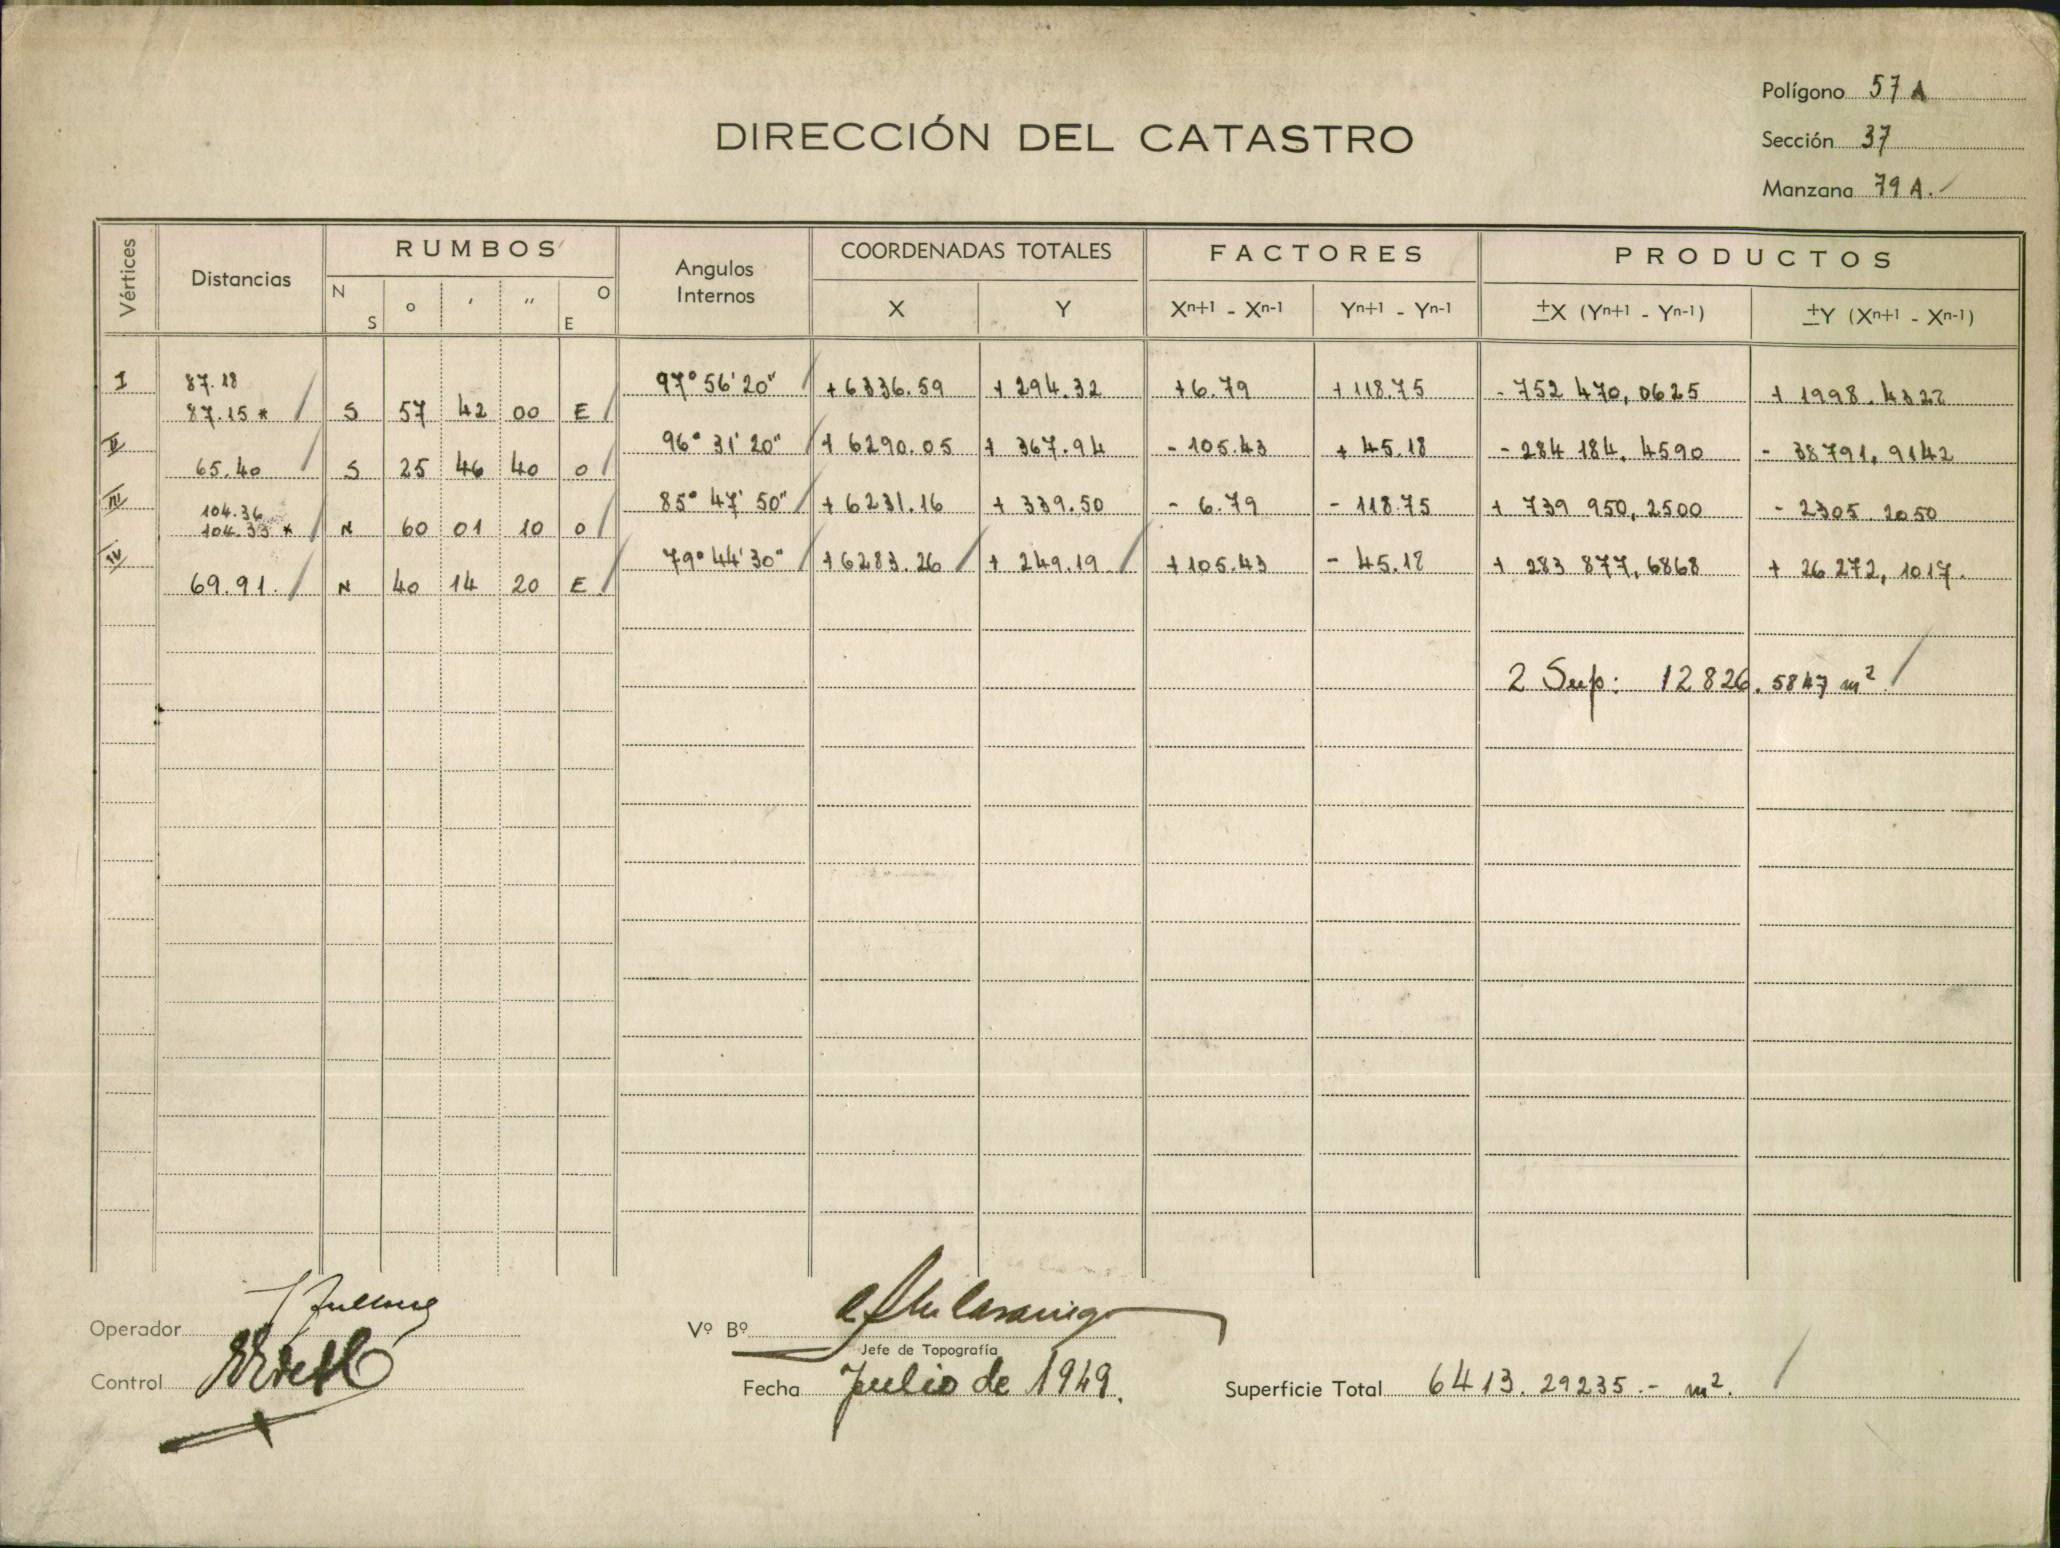 Polígono 57 A
DIRECCIÓN DEL CATASTRO
Sección 37
Manzana 79 A.
Vértices Distancias RUMBOS Angulos Internos COORDENADAS TOTALES FACTORES PRODUCTOS
N S ° ' " O E X Y Xn+1 - Xn-1 Yn+1 - Yn-1 ±X (Yn+1 - Yn-1) ±Y (Xn+1 - Xn-1)
I 87.18 97° 56' 20" +6336.59 + 294.32 +6.79 + 118.75 - 752 470,0625 + 1998.4322
87.15 * S 57 42 00 E
II 96° 31' 20" + 6290.05 + 367.94 - 105.43 + 45.18 - 284 184,4590 - 38791,9142
65.40 S 25 46 40 O
III 104.36 85° 47' 50" + 6231.16 + 339.50 - 6.79 - 118.75 + 739 950,2500 - 2305.2050
104.33 * N 60 01 10 O
IV 79° 44' 30" +6283.26 + 249.19 +105.43 - 45.18 + 283 877,6868 + 26 272,1017.
69.91. N 40 14 20 E
2 Sup: 12826.5847 m²
Operador
Vº Bº
Jefe de Topografía
Control
Fecha Julio de 1949.
Superficie Total 6413.29235.- m².